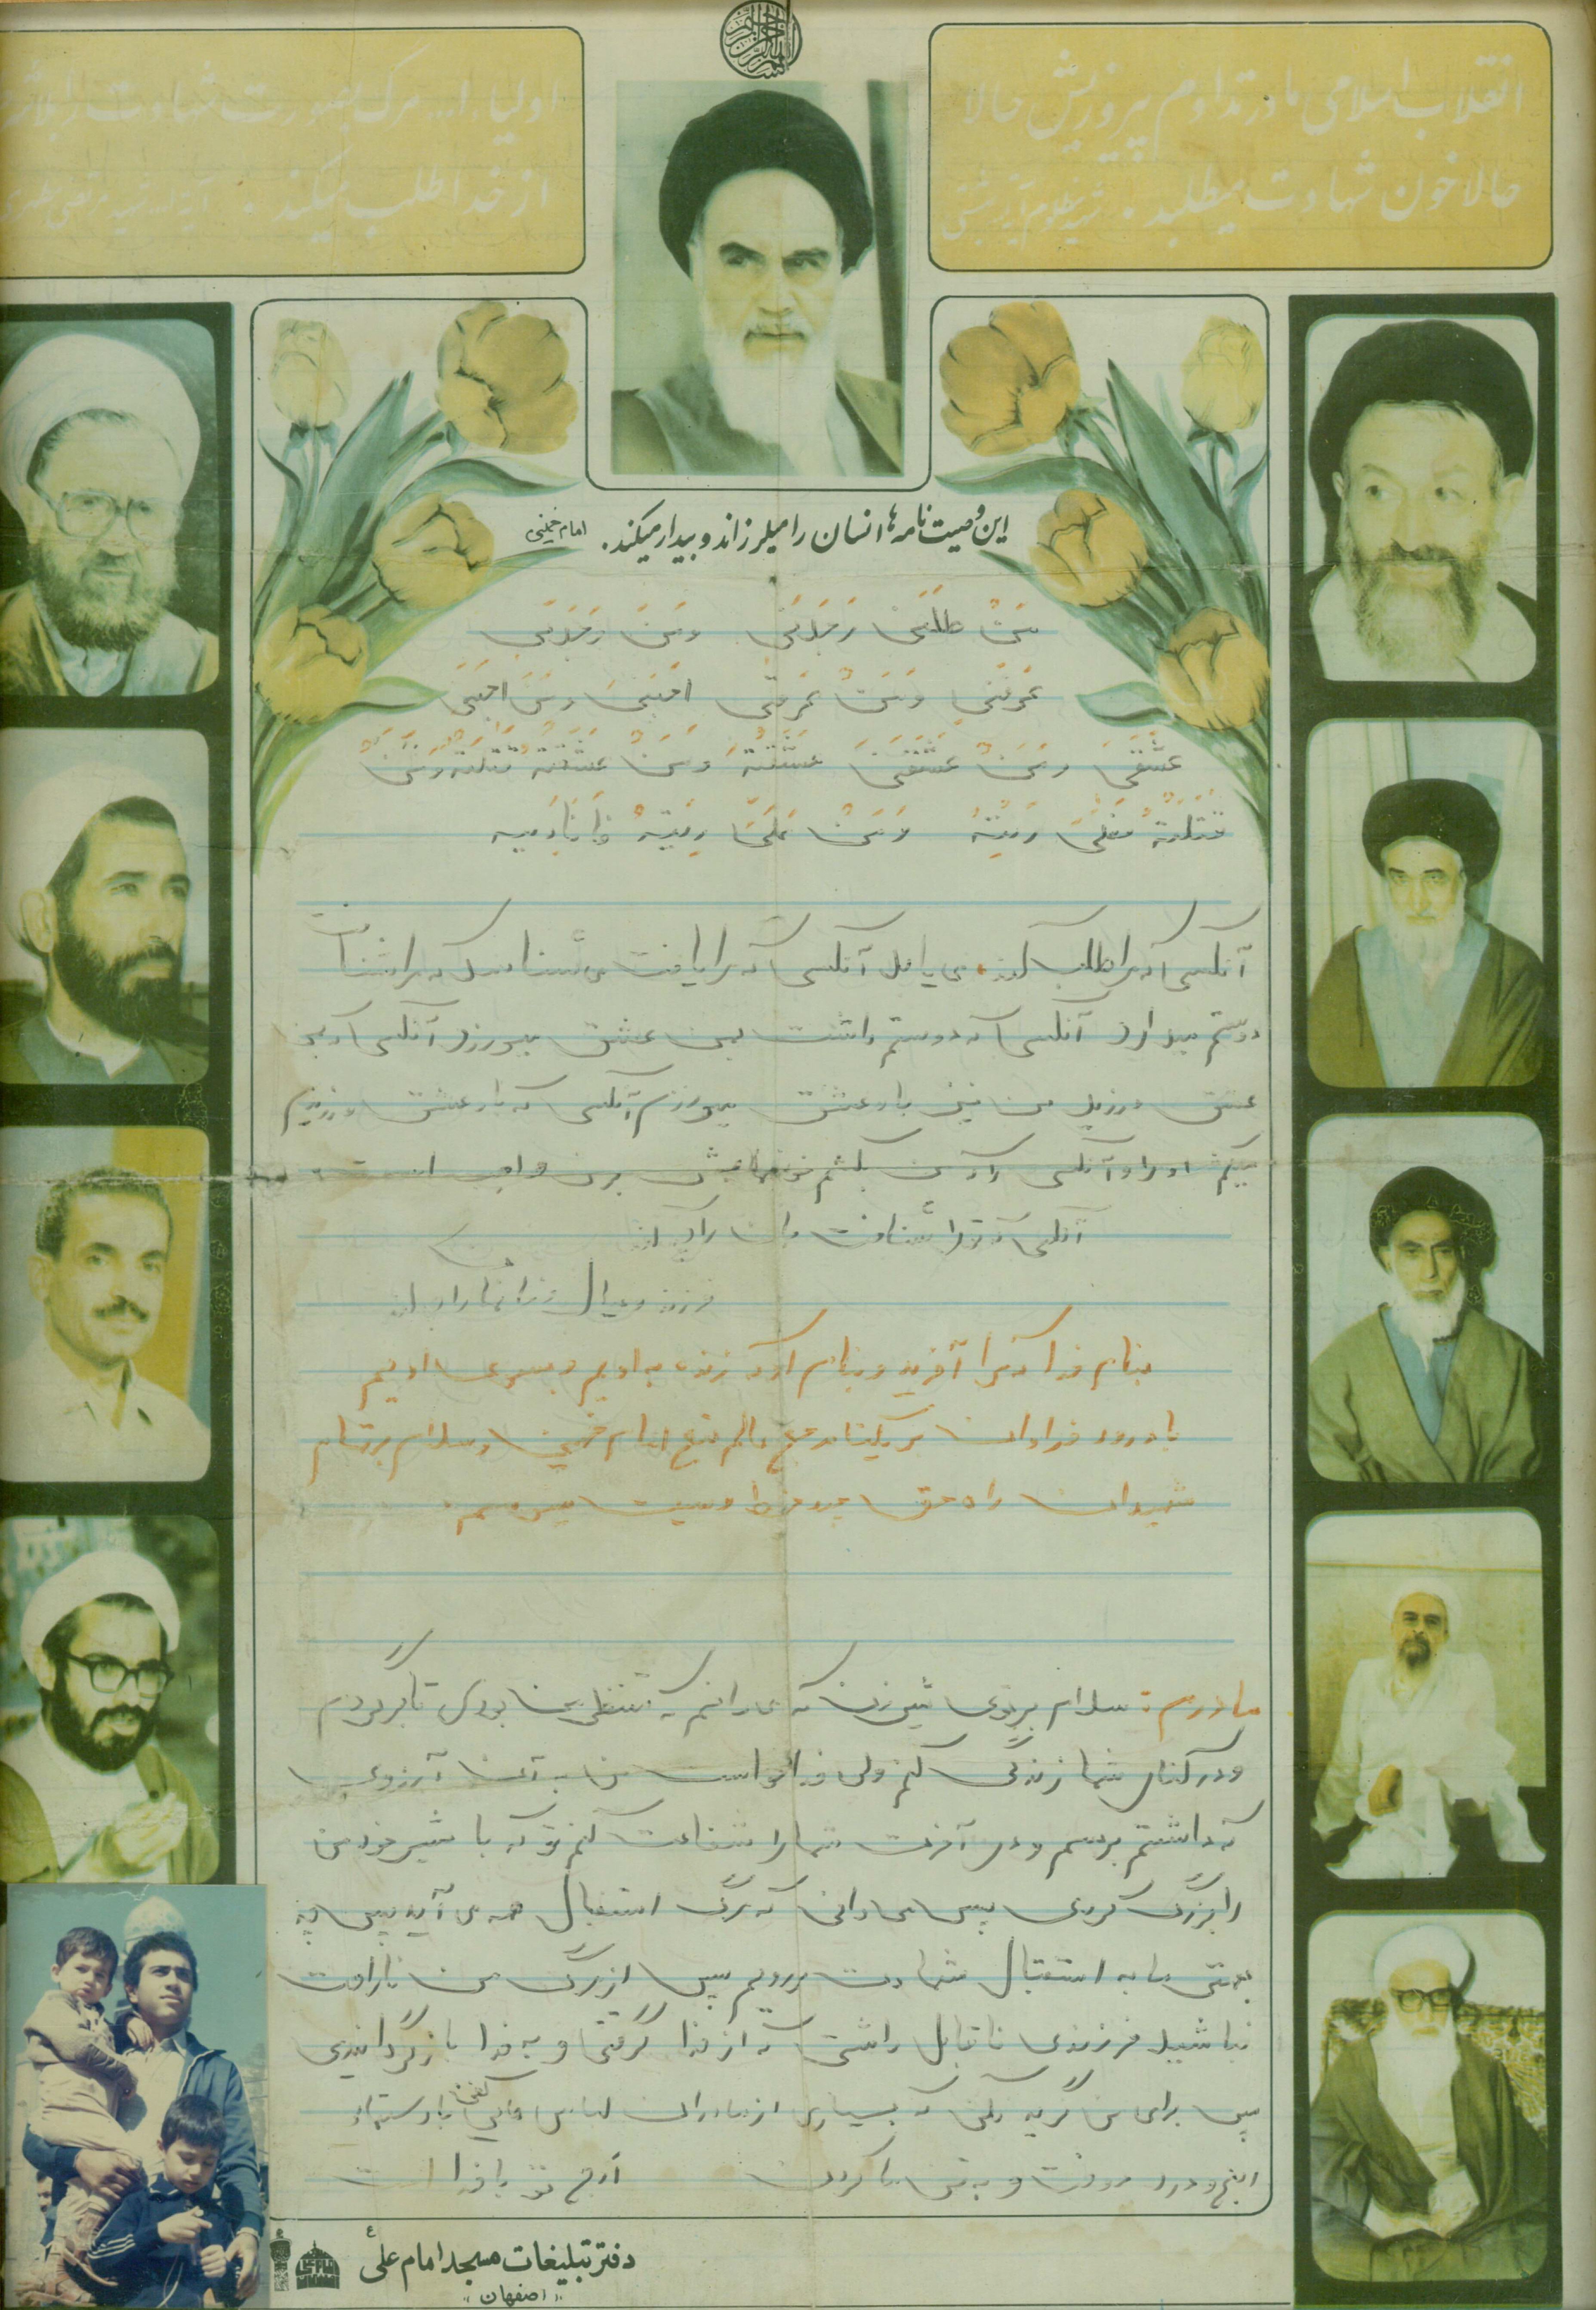 انقلاب اسلامی ما در تداوم پیروزیش حالا
حالا خون شهادت میطلبد . شهید مظلوم آیة بهشتی
اولیاء ا... مرگ بصورت شهادت را
از خدا طلب میکند . آیة ا... شهید مرتضی مطهری
این وصیت نامه ها انسان را میلرزاند و بیدار میکند . امام خمینی
مَنْ طَلَبَنی وَجَدَنی وَمَنْ وَجَدَنی
عَرَفَنی وَمَنْ عَرَفَنی احَبَّنی وَمَنْ احَبَّنی
عَشَقَنی وَمَنْ عَشَقَنی عَشَقْتُهُ وَمَنْ عَشَقْتُهُ قَتَلْتُهُ وَمَنْ
قَتَلْتُهُ فَعَلَیَّ دِیَتُهُ وَمَنْ عَلَیَّ دِیَتُهُ فَاَنَا دِیَتُه
آنکس که مرا طلب کند می یابد آنکس که مرا یافت می شناسد که مرا شناخت
دوستم میدارد آنکس که دوستم داشت بمن عشق میورزد آنکس که بمن
عشق ورزید من نیز باو عشق میورزم آنکس که باو عشق ورزیدم
میکشم او را و آنکس را که من بکشم خونبهایش بر من واجب است
آنکس که تو را شناخت جان را چه کند
فرزند و عیال و خانمان را چه کند
بنام خدا که مرا آفرید و بنام او که زنده به اویم و بسوی اویم
با درود فراوان بر یگانه مرجع عالم تشیع امام خمینی و سلام بر تمام
شهیدان راه حق چند خط وصیت مینویسم
مادرم : سلام بر توی شیرزن که می دانم که منتظر من بودی تا برگردم
و در کنار شما زندگی کنم ولی خدا خواست من به آن آرزوی
که داشتم برسم و در آخرت شما را شفاعت کنم تو که با شیر خود من
را بزرگ کردی پس می دانی که مرگ استقبال همه می آید پس چه
بهتر ما به استقبال شهادت برویم پس از مرگ من ناراحت
نباشید فرزندی ناقابل داشتی که از خدا گرفتی و به خدا بازگرداندی
پس برای من گریه نکن که بسیاری از مادران لباس کفن
رفت و به تن ما کردند اجر تو با خدا است
دفتر تبلیغات مسجد امام علی ع
"اصفهان"